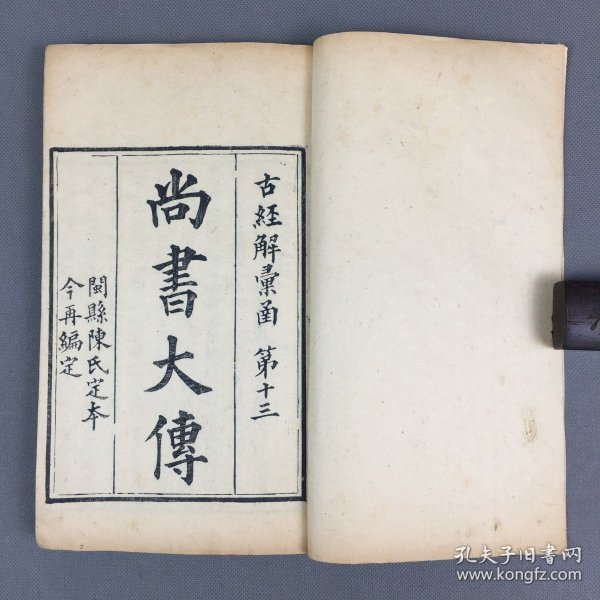 古經解彙函 第十三
尚書大傳
閩縣陳氏定本
今再編定
孔夫子旧书网
www.kongfz.com